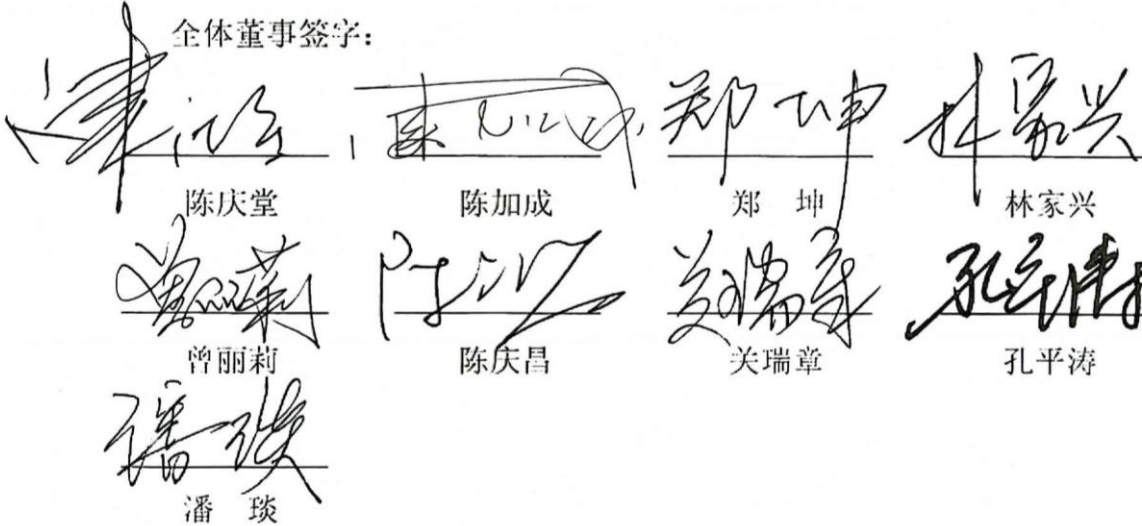 全体董事签字：
陈庆堂 陈加成 郑 坤 林家兴
曾丽莉 陈庆昌 关瑞章 孔平涛
潘 琰